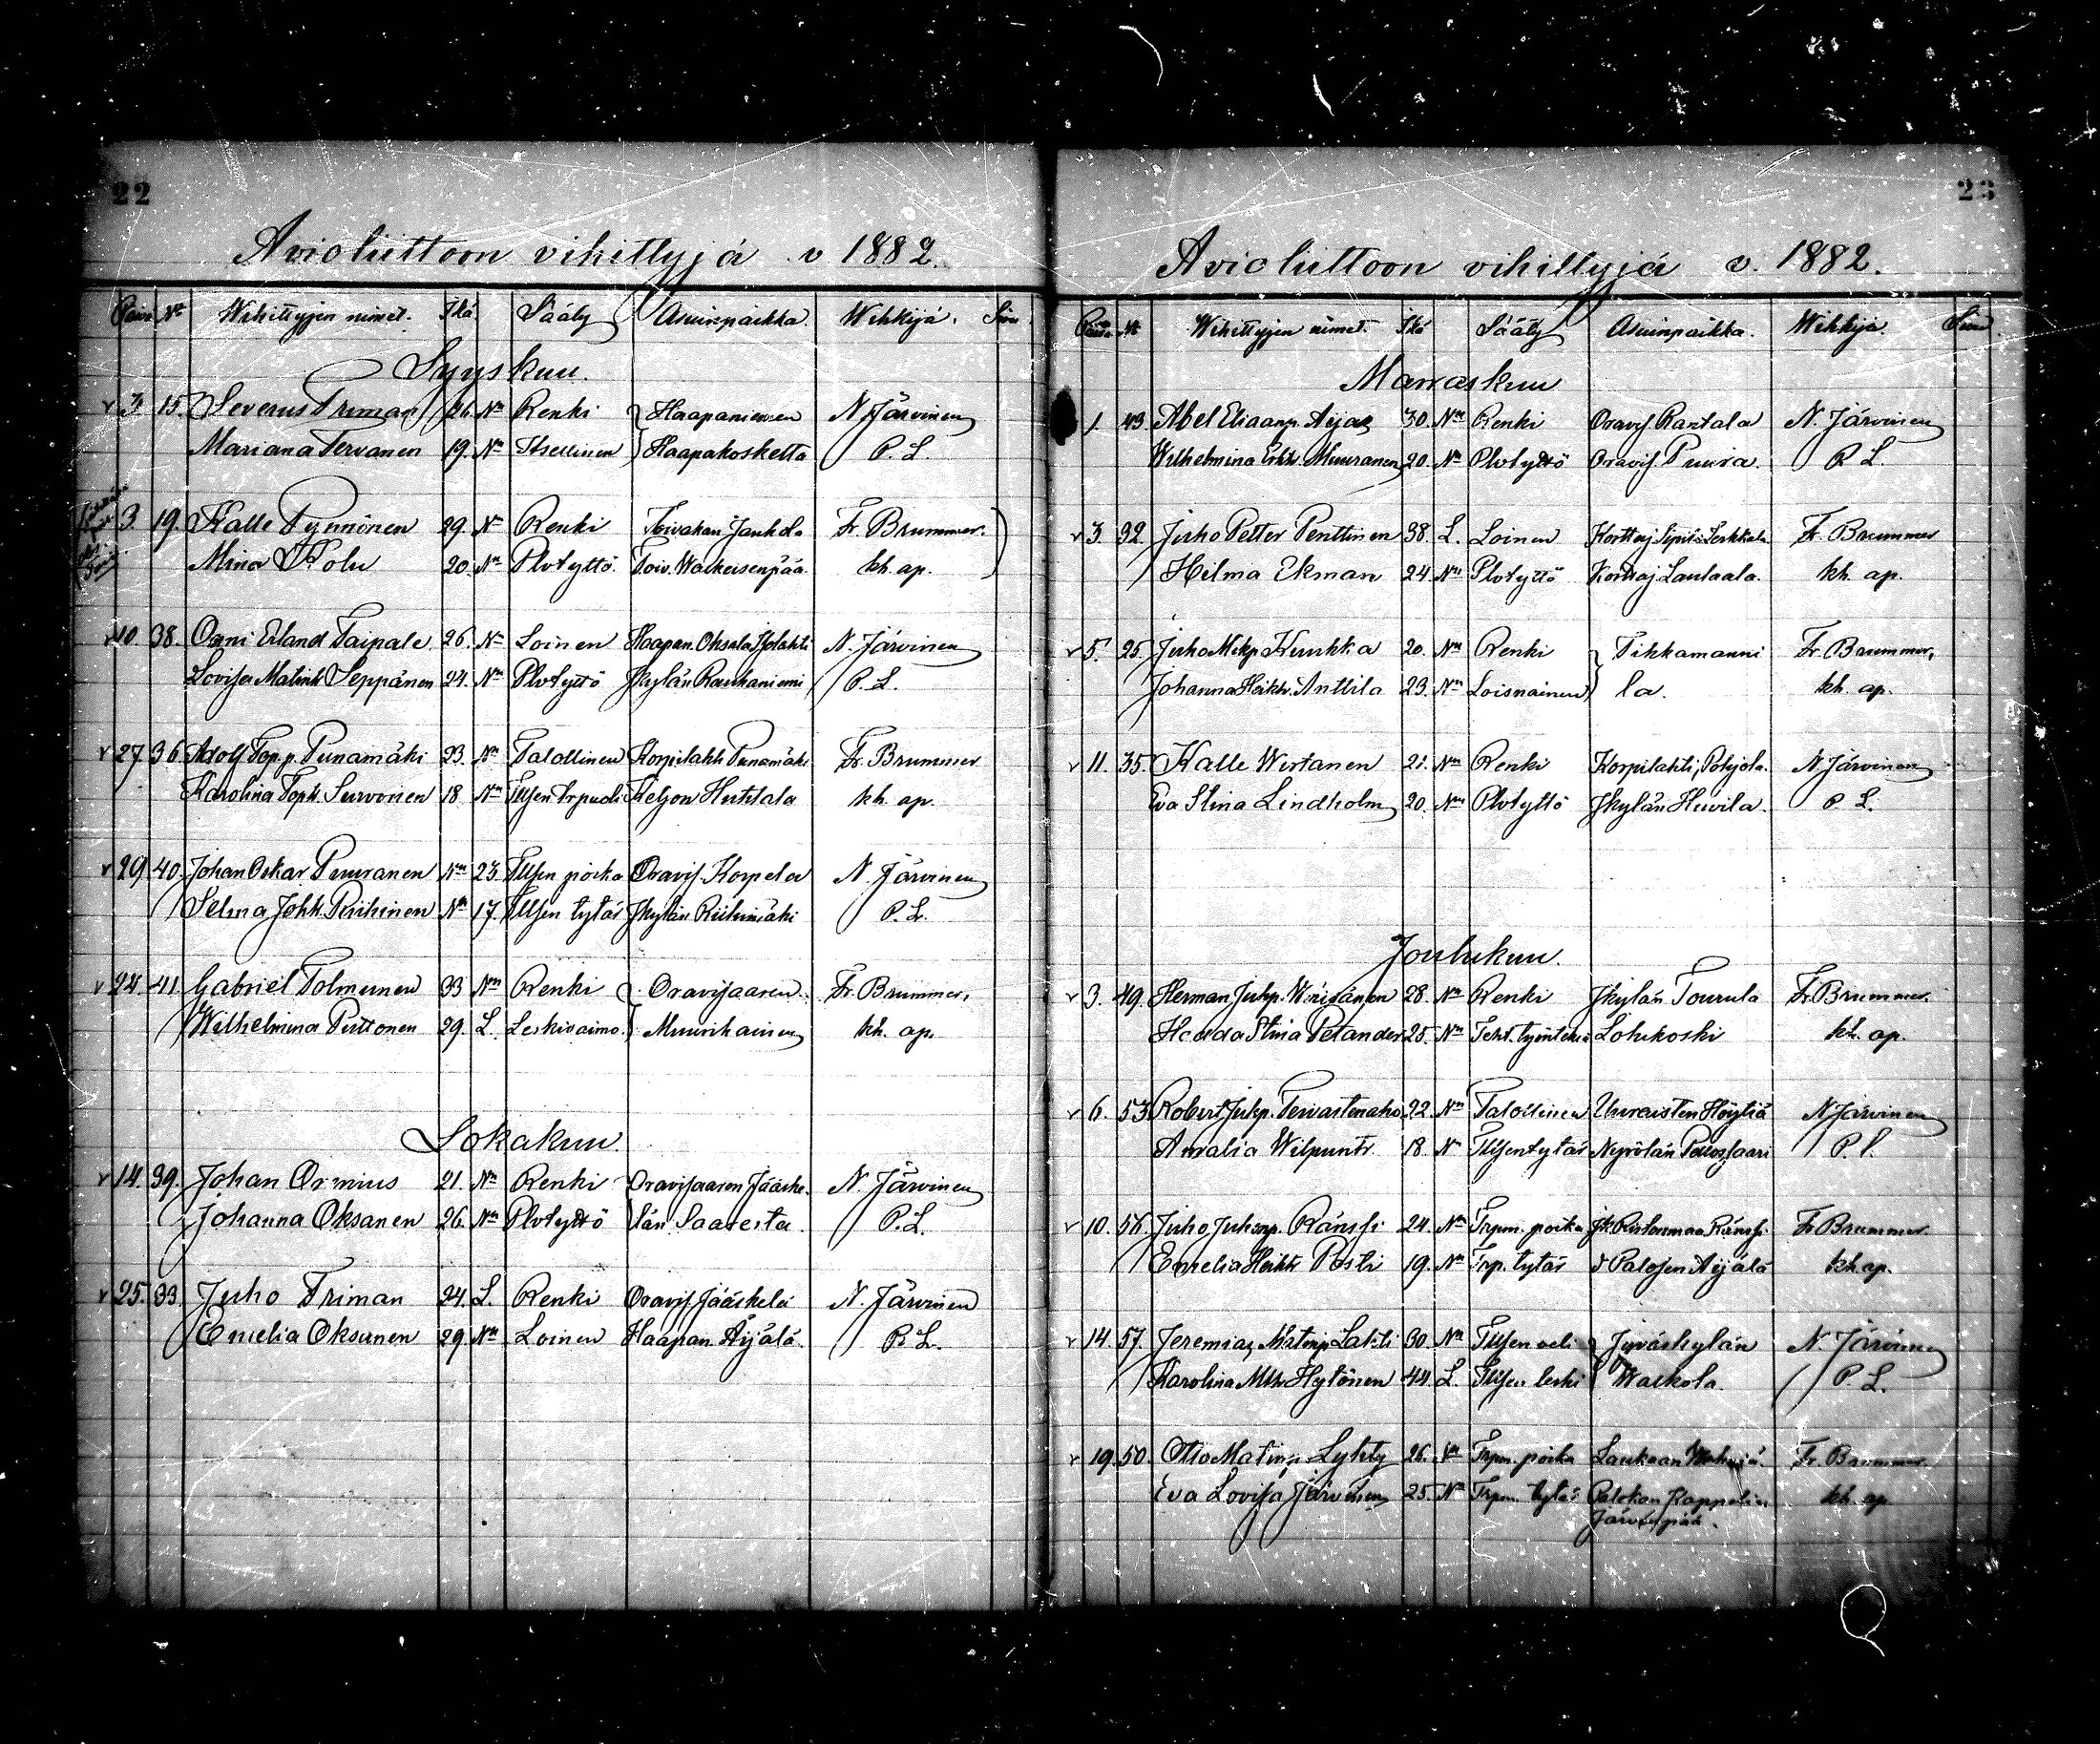 22
Avioliittoon vihittyjä v 1882.
Päivä No Wihittyjen nimet. Ikä Sääty Asuinpaikka. Wihkijä. Sivu
Syyskuu.
3 15. Severus Friman 26. Nn Renki Haapaniemen N. Järvinen
Mariana Tervanen 19. Nn Itsellinen Haapakosketta P. L.
3 19. Kalle Pynnönen 29. Nn Renki Toivakan Jankola Fr. Brummer.
Mina Kolu 20. Nn Plvtyttö. Toiv. kh. ap.
10. 38. Erland Taipale 26. Nn Loinen Haapan. Oksala N. Järvinen
Lovisa Matint. Seppänen 24. Nn Plvtyttö Jkylän Rauhaniemi P. L.
27. 36. Adolf Topp. Punamäki 23. Nn Talollinen Korpilahti Punamäki Fr. Brummer
Karolina Survonen 18 Nn Keljon Huttula kh. ap.
29. 40. Johan Oskar Puuranen Nn 23. Tllsen poika Oravis. Korpela N. Järvinen
Selma Johh. Piihinen Nn 17. Tllsen tytär Jkylän Riihimäki P. L.
24. 41. Gabriel Tolmunen 33 Nn Renki Oravisaaren Fr. Brummer,
Wilhelmina Puttonen 29. L. Leskivaimo. Muurikainen kh. ap.
Lokakuu.
14. 39. Johan Ormius 21. Nn Renki Oravisaaren Jääske- N. Järvinen
Johanna Oksanen 26. Nn Plvtyttö län Saaresta P. L.
25. 33. Juho Friman 24. L. Renki Oravis. Jääskelä N. Järvinen
Emelia Oksanen 29. Nn Loinen Haapan. Äijälä. P. L.
23
Avioliittoon vihittyjä v. 1882.
Päivä No Wihittyjen nimet. Ikä Sääty Asuinpaikka. Wihkijä. Sivu.
Marraskuu
1. 43 Abel Eliaanp. Äijä 30. Nn Renki Oravis. Rantala N. Järvinen
Wilhelmina Erkk. Muuranen 20. Nn Plvtyttö Oravis. Puura. P. L.
3. 32. Juho Petter Penttinen 38. L. Loinen Korttaj. Fr. Brummer
Hilma Ekman 24. Nn Plvtyttö Korttaj. Laulaala. kh. ap.
5. 25. Juho Mikp. Kuukka 20. Nn Renki Tikkamanni Fr. Brummer,
Johanna Heikk. Anttila 23. Nn Loisnainen la. kh. ap.
11. 35. Kalle Wirtanen 21. Nn Renki Korpilahti, Pohjola. N. Järvinen
Eva Stina Lindholm 20. Nn Plvtyttö Jkylän Huvila. P. L.
Joulukuu.
3. 49. Herman Juhp. 28. Nn Renki Jkylän Tourula Fr. Brummer.
Hedda Stina Pelander 25. Nn Teht. työntekiä Lohikoski kh. ap.
6. 53. Robert Juhp. Tervastenaho 22. Nn Talollinen Uuraisten Höytiä N. Järvinen
Amalia Wilpuntr. 18. N Tllsentytär Nyrölän P. L.
10. 56. Juho Juhonp. Ränssi 24. Nn Trpm. poika Fr. Brummer.
Emelia Heikk. Posti 19. Nn Trp. tytär Palosen Äijälä kh. ap.
14. 57. Jeremias Matinp. Lahti 30. Nn Tllsen veli Jyväskylän N. Järvinen
Karolina Mtk. Hytönen 44. L. Tllsen leski Waskola. P. L.
19. 50. Otto Matinp. Lyhty 26. Nn Trpm. poika Laukaan Fr. Brummer.
Eva Lovisa Järvinen 25. Nn Trpm. tytär Palokan Kappelin kh. ap
Järvenpää.